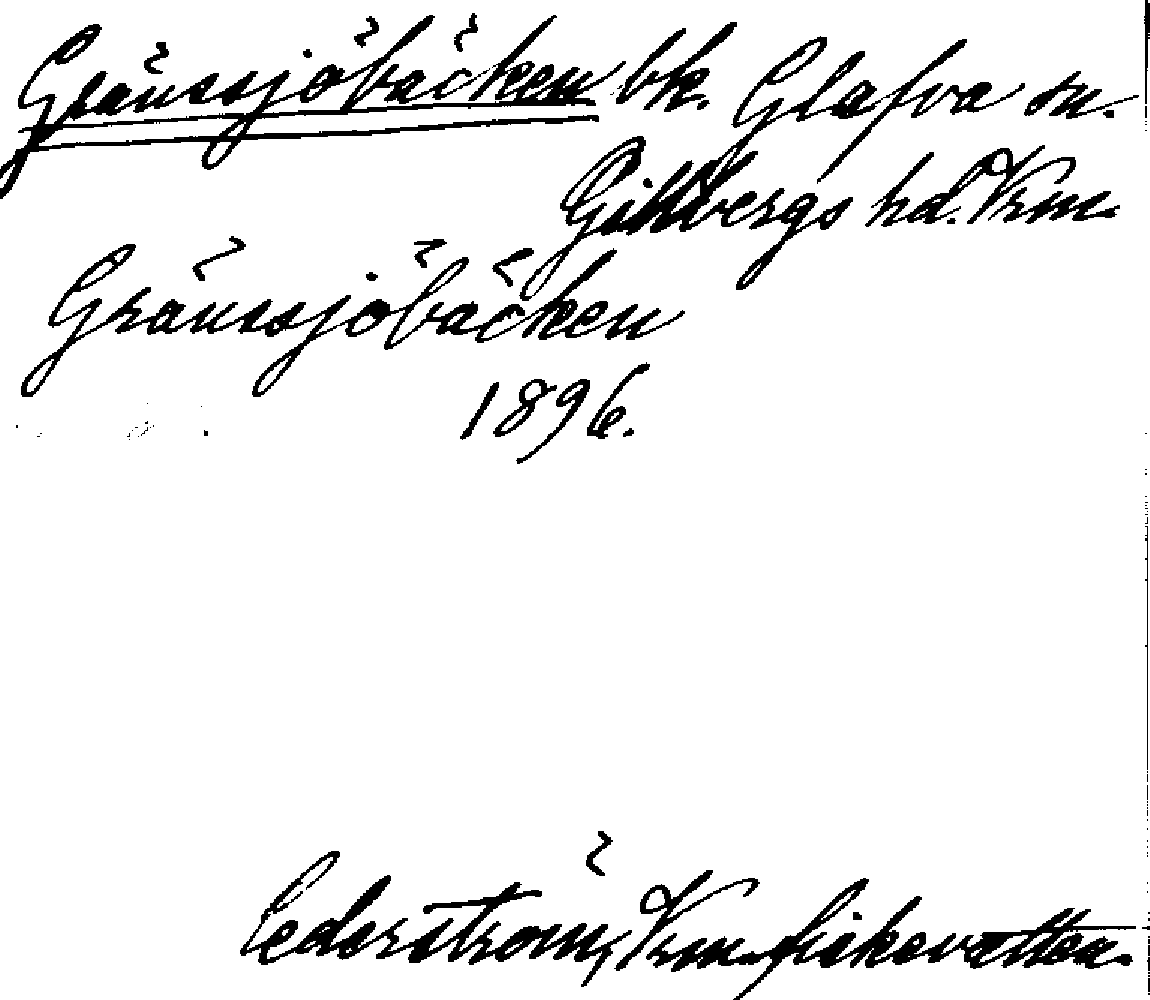 Gränssjöbäcken bk. Glafva sn.
Gillbergs hd. Vrm.
Gränssjöbäcken
1896.
Cederström, Vrm. fiskevatten.